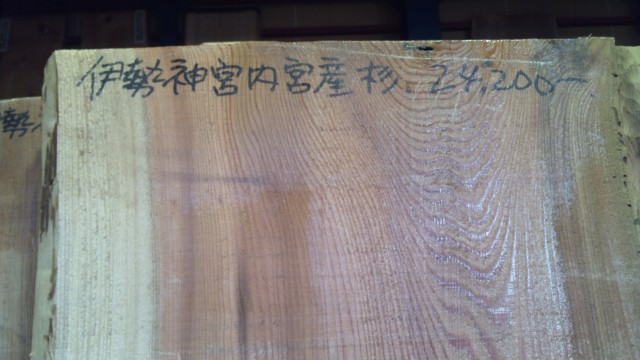 伊勢神宮内宮産杉 24,200ー
勢